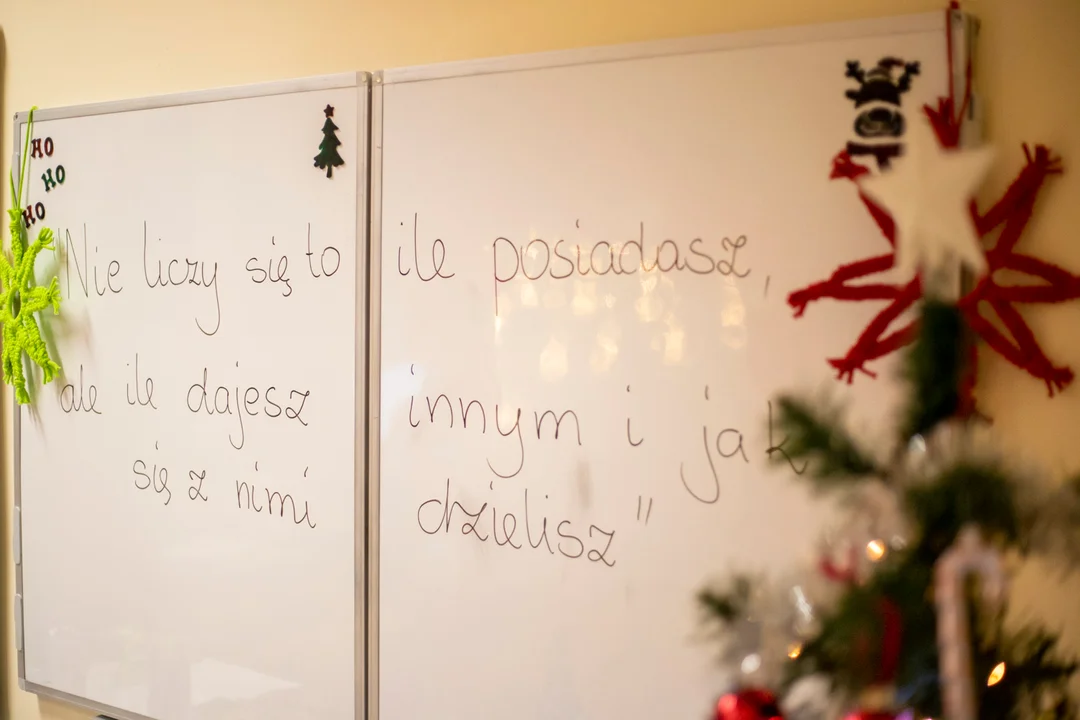 HO
HO
HO
"Nie liczy się to ile posiadasz,
ale ile dajesz innym i jak
się z nimi dzielisz"